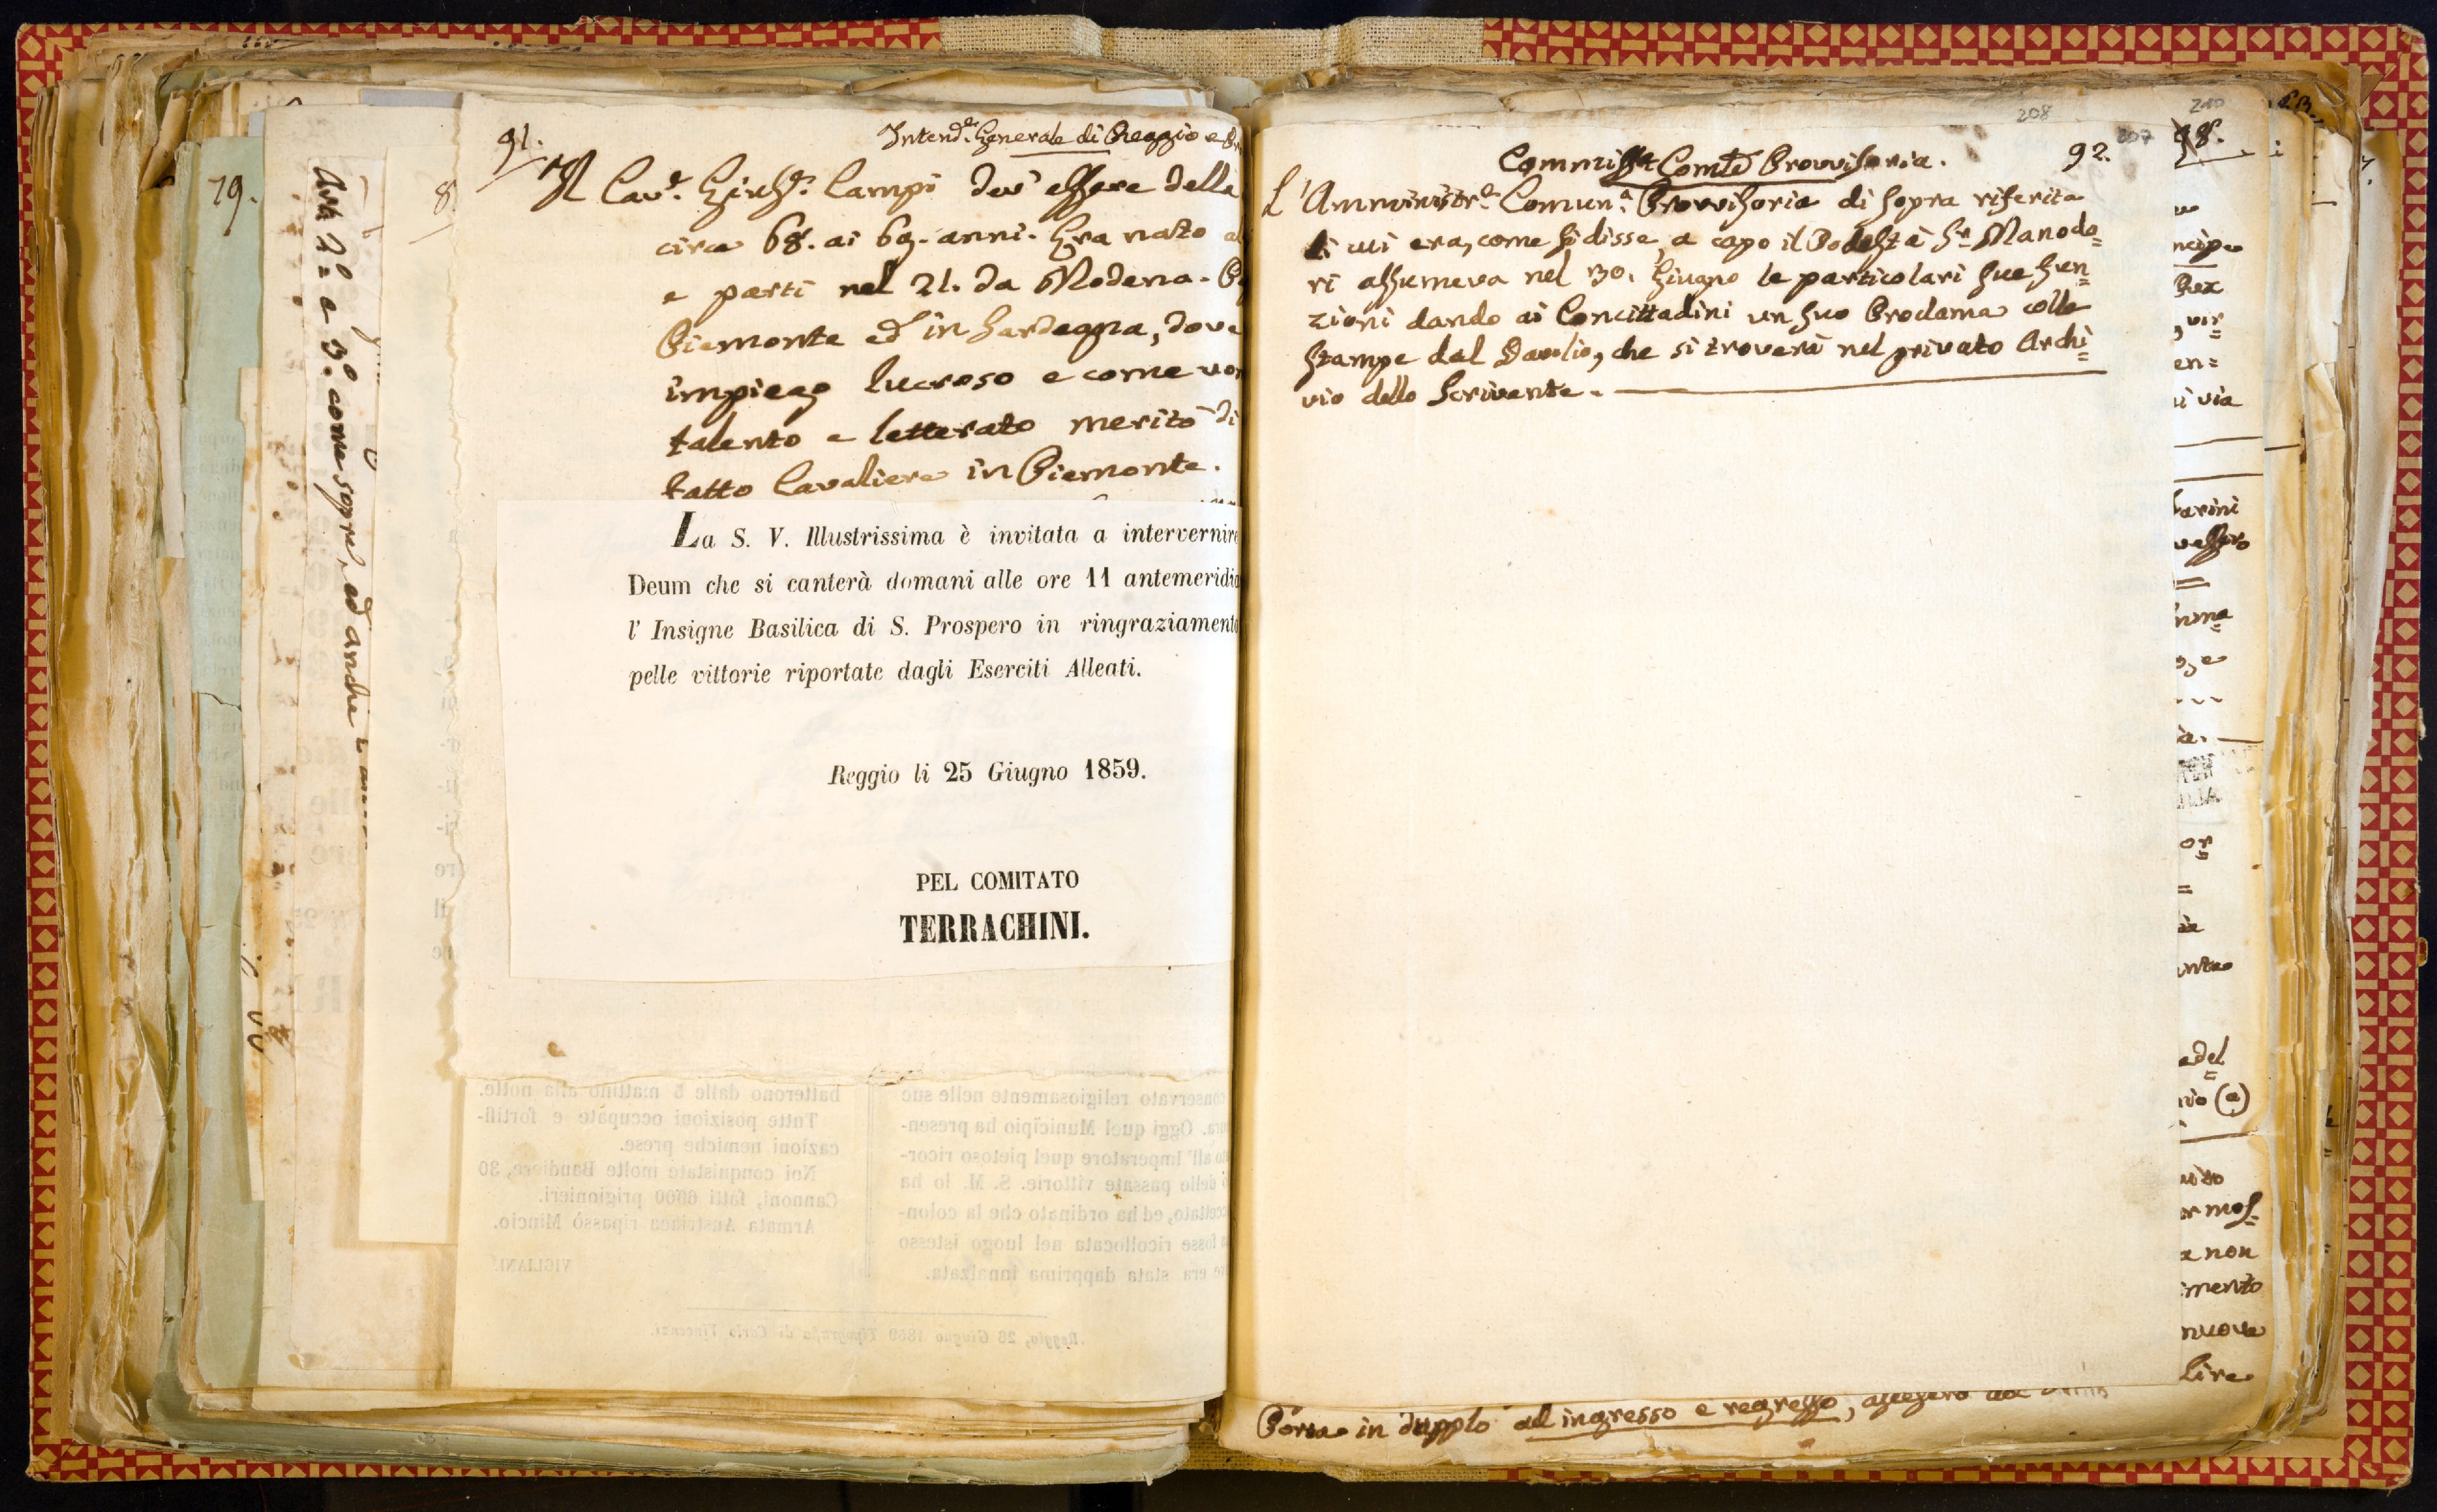 79.
Art. 2.º e 3.º come sopra, ed anche
8
91.
Intend.e Generale di Reggio e
Il Cav.e Gius.e Campi dev' essere delle
circa 68. ai 69. anni. Era nato
e parti nel 21. da Modena.
Piemonte ed in Sardegna, dove
impiego lucroso e come
talento e letterato meritò di
fatto Cavaliere in Piemonte.
La S. V. Illustrissima è invitata a intervernire
Deum che si canterà domani alle ore 11 antemeridia
l' Insigne Basilica di S. Prospero in ringraziamento
pelle vittorie riportate dagli Eserciti Alleati.
Reggio li 25 Giugno 1859.
PEL COMITATO
TERRACHINI.
batterono dalle 5 mattino alla notte.
Tutte posizioni occupate e fortifi-
cazioni nemiche prese.
Noi conquistate molte Bandiere, 30
Cannoni, fatti 6000 prigionieri.
Armata Austriaca ripassò Mincio.
VIGLIANI.
conservato religiosamente nelle sue
Oggi quel Municipio ha presen-
all' Imperatore quel pietoso ricor-
delle passate vittorie. S. M. lo ha
ed ha ordinato che la colon-
fosse ricollocata nel luogo istesso
era stata dapprima innalzata.
Reggio, 26 Giugno 1859 Tipografia di Carlo Vincenzi.
208
207
210
92.
Commiss.e Com.le Provvisoria.
L'Amministr.e Comun.e Provvisoria di sopra riferita
di cui era, come si disse, a capo il Podestà S.r Manodo=
ri assumeva nel 30. Giugno le particolari sue fun=
zioni dando ai Concittadini un suo Proclama colle
stampe del Davolio, che si troverà nel privato Archi=
vio dello Scrivente.
98.
ncipe
en=
i via
arini
adel
(a)
non
mento
nuove
Lire
Porta in dupplo ad ingresso e regresso,